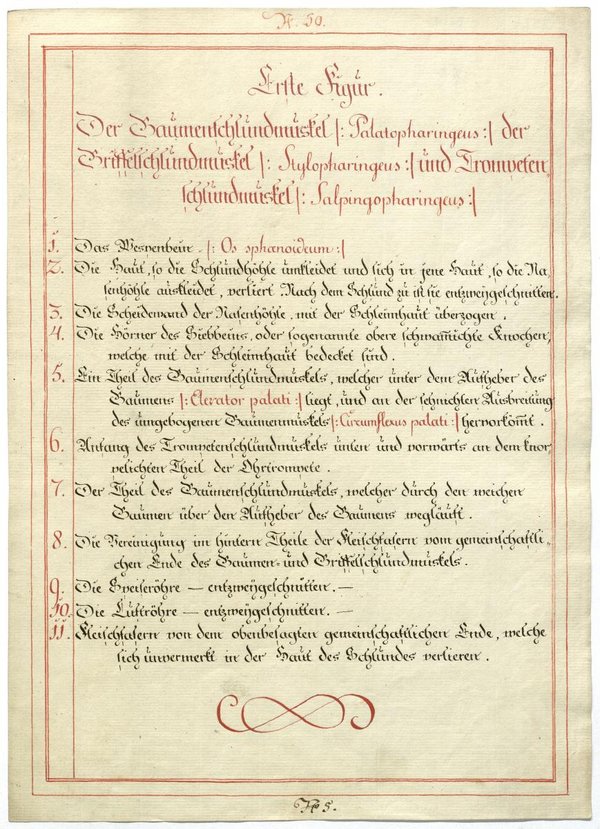 N. 50.
Erste Figur.
Der Gaumenschlundmuskel |: Palatopharingeus :| der
Griffelschlundmuskel |: Stylopharingeus :| und Trompeten,
schlundmuskel |: Salpingopharingeus :|
1. Das Wespenbein |: Os sphænoideum :|
2. Die Haut, so die Schlundhöhle umkleidet und sich in jene Haut, so die Na-
senhöhle auskleidet, verliert. Nach dem Schlund zu ist sie entzweÿgeschnitten.
3. Die Scheidewand der Nasenhöhle, mit der Schleimhaut überzogen.
4. Die Hörner des Siebbeins, oder sogenannte obere schwam̅ichte Knochen,
welche mit der Schleimhaut bedecket sind.
5. Ein Theil des Gaumenschlundmuskels, welcher unter dem Aufheber des
Gaumens |: Elevator palati :| liegt, und an der sehnichten Ausbreitung
des umgebogenen Gaumenmuskels |: Circumflexus palati :| hervorkom̅t.
6. Anfang des Trompetenschlundmuskels unten und vorwärts an dem knor-
pelichten Theil der Ohrtrompete.
7. Der Theil des Gaumenschlundmuskels, welcher durch den weichen
Gaumen über den Aufheber des Gaumens wegläuft.
8. Die Vereinigung im hintern Theile der Fleischfasern vom gemeinschaftli-
chen Ende des Gaumen- und Griffelschlundmuskels.
9. Die Speiseröhre — entzweÿgeschnitten. —
10. Die Luftröhre — entzweÿgeschnitten. —
11. Fleischfasern von dem obenbesagten gemeinschaftlichen Ende, welche
sich unvermerkt in der Haut des Schlundes verlieren.